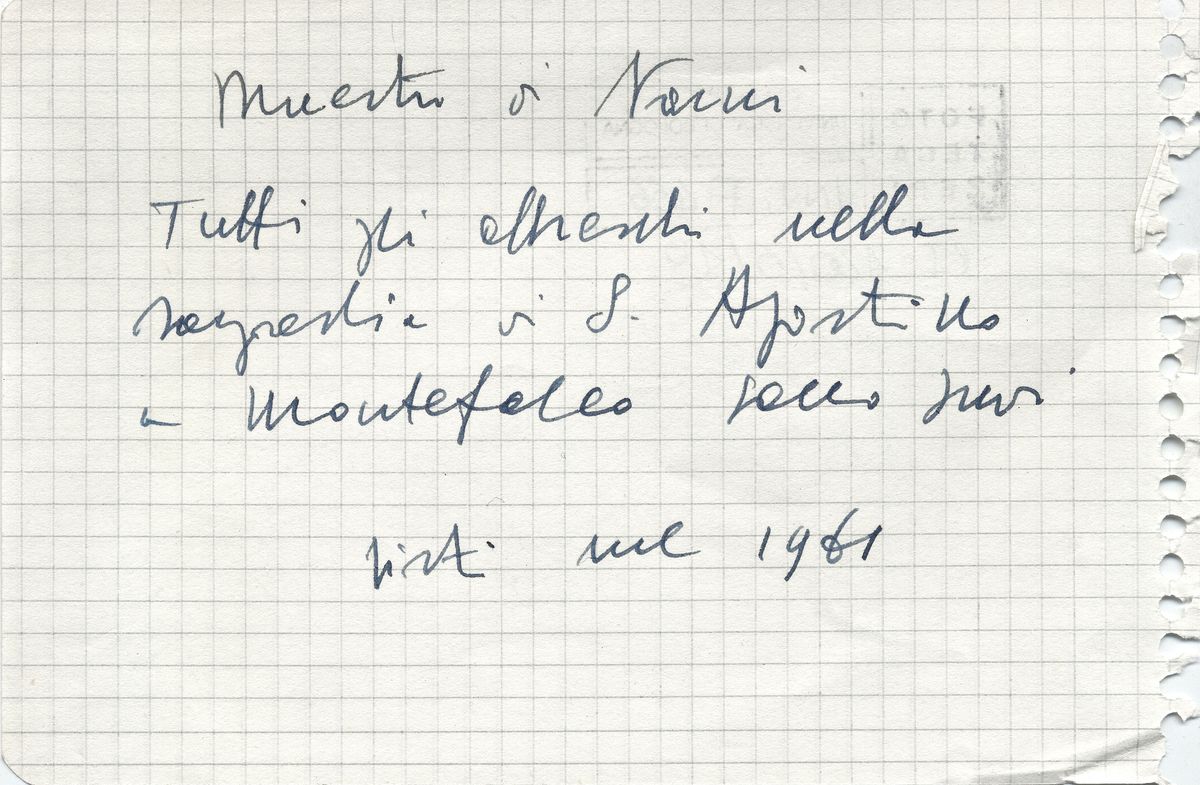 Maestro di Narni
Tutti gli affreschi nella
sagrestia di S. Agostino
a Montefalco sono suoi
visti nel 1961